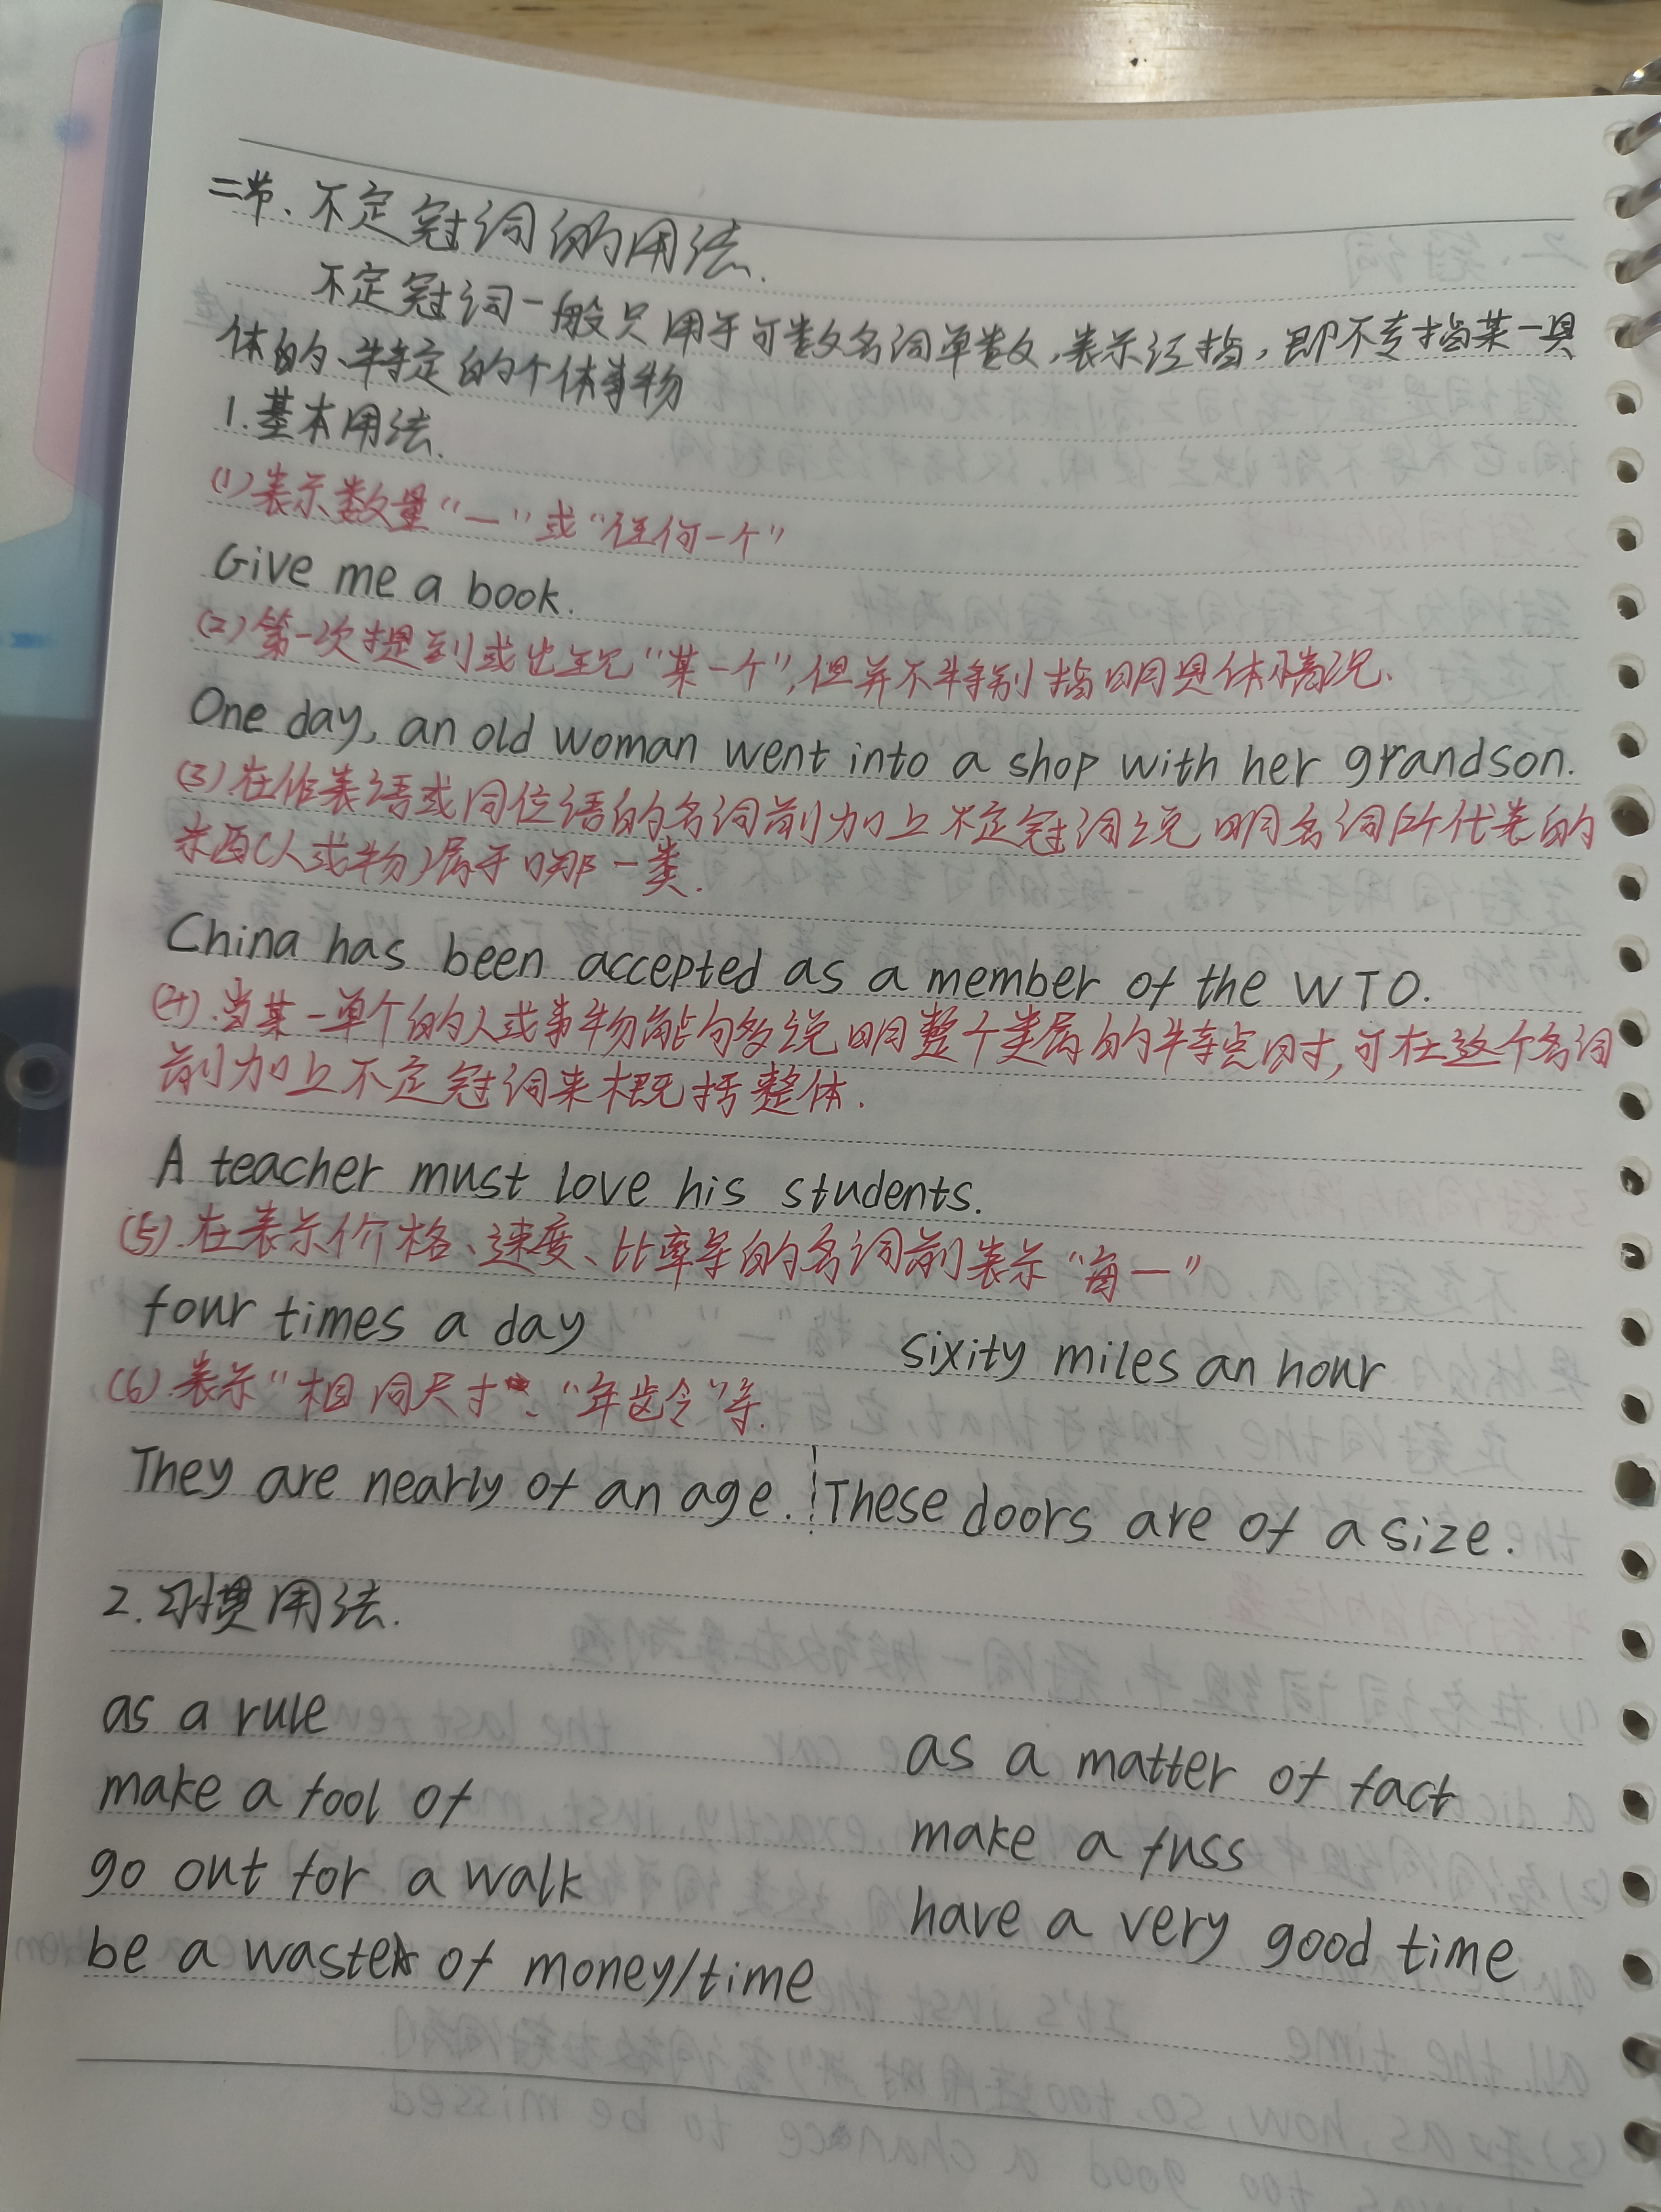 二节、不定冠词的用法.
不定冠词一般只用于可数名词单数,表示泛指,即不专指某一具
体的、特定的个体事物
1.基本用法.
(1)表示数量“一”或“任何一个”
Give me a book.
(2)第一次提到或出现“某一个”,但并不特别指明具体情况.
One day, an old woman went into a shop with her grandson.
(3)在作表语或同位语的名词前加上不定冠词说明名词所代表的
东西(人或物)属于哪一类.
China has been accepted as a member of the WTO.
(4).当某一单个的人或事物能够说明整个类属的特点时,可在这个名词
前加上不定冠词来概括整体.
A teacher must love his students.
(5).在表示价格、速度、比率等的名词前表示“每一”
four times a day sixity miles an hour
(6)表示“相同尺寸”、“年龄”等.
They are nearly of an age. These doors are of a size.
2.习惯用法.
as a rule as a matter of fact
make a fool of make a fuss
go out for a walk have a very good time
be a waste of money/time